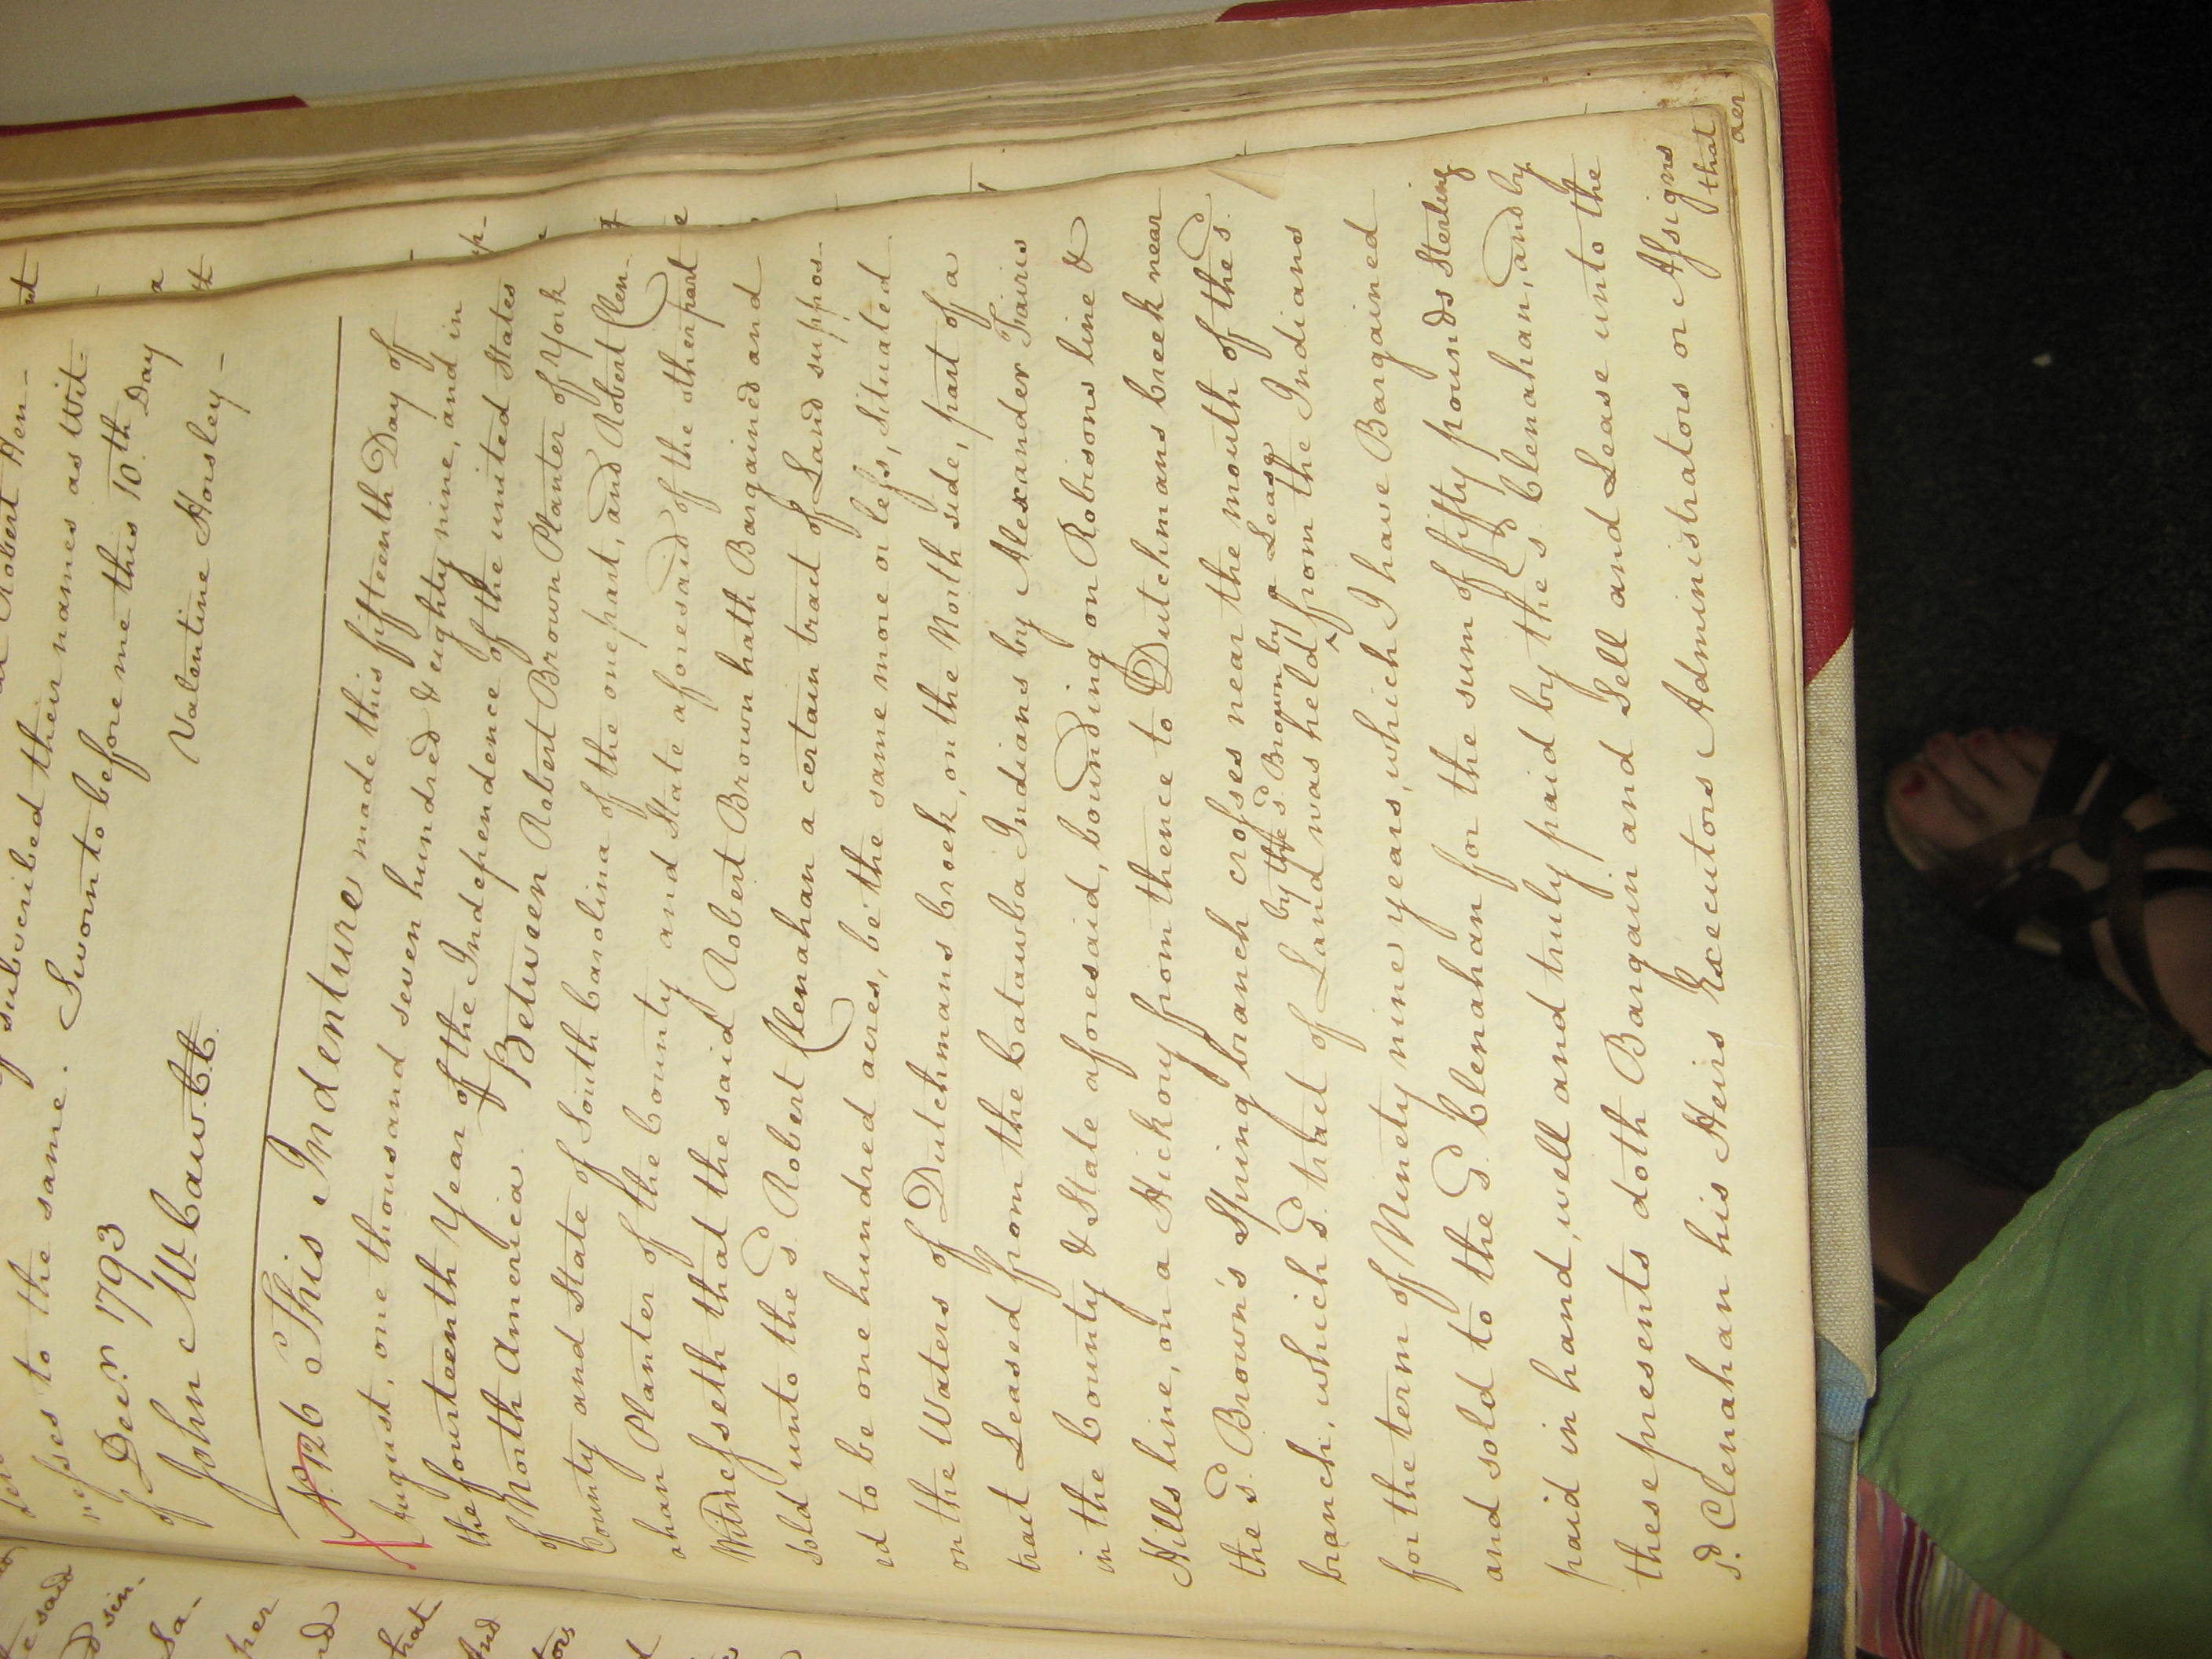 Robert Hen-
subscribed their names as Wit-
nesses to the same. Sworn to before me this 10.th Day
of Decr. 1793
John McCaw. C.C. Valentine Horsley -
N. 126 This Indenture made this fifteenth Day of
August, one thousand seven hundred & eighty nine, and in
the fourteenth Year of the Independence of the united States
of North America. Between Robert Brown Planter of York
County and State of South Carolina of the one part, and Robert Clen-
ahan Planter of the County and State aforesaid of the other part
Witnesseth that the said Robert Brown hath Bargained and
sold unto the sd. Robert Clenahan a certain tract of Land suppos-
ed to be one hundred acres, be the same more or less, Situated
on the Waters of Dutchmans Creek, on the North side, part of a
tract Leased from the Catawba Indians by Alexander Fairis
in the County & State aforesaid, bounding on Robisons line &
Hills line, on a Hickory from thence to Dutchmans Creek near
the sd. Brown's Spring branch crosses near the mouth of the sd.
by the sd. Brown by a Lease
branch, which sd. tract of Land was held ^ from the Indians
for the term of Ninety nine years, which I have Bargained
and sold to the sd. Clenahan for the sum of fifty pounds Sterling
paid in hand, well and truly paid by the sd. Clenahan, and by
these presents doth Bargain and Sell and Lease unto the
sd. Clenahan his Heirs Executors Administrators or Assigns
that